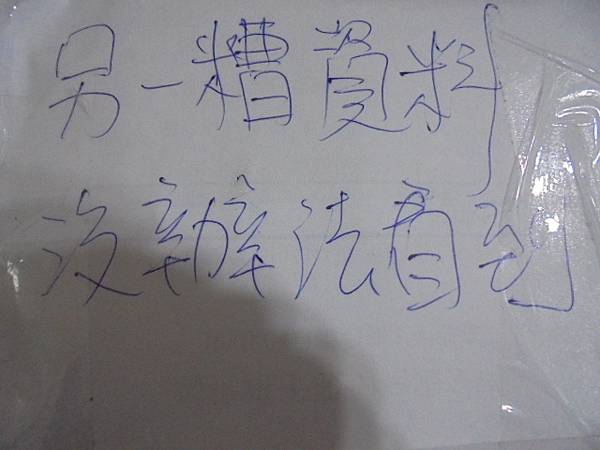 另一糟資料
沒辦法看到